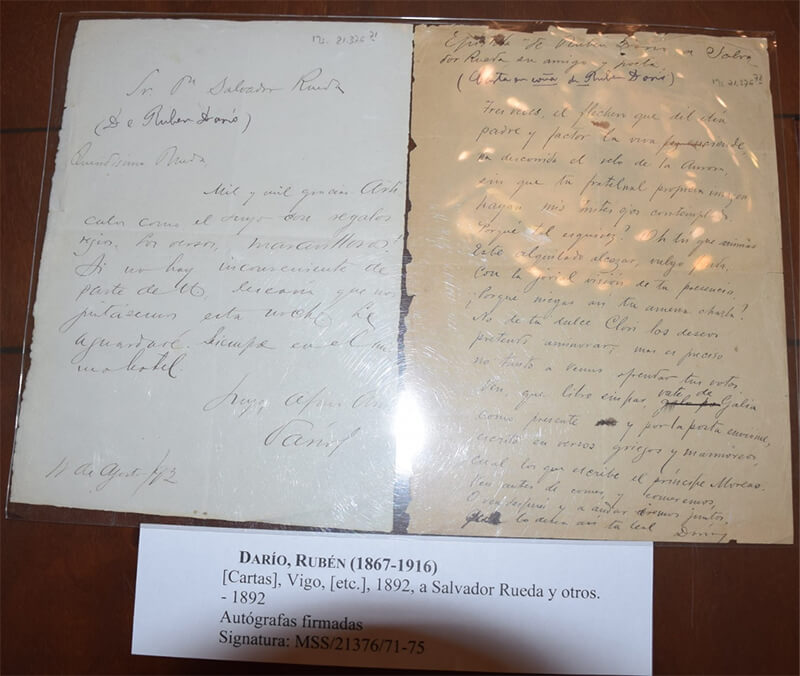 Ms. 21.376 71
Sr. Dn Salvador Rueda
(De Ruben Darío)
Queridísimo Rueda,
Mil y mil gracias. Artí
culos como el suyo son regalos
rejios. Los versos, maravillosos!
Si no hay inconveniente de
parte de Ud, desearía que nos
juntásemos esta noche. Le
aguardaré. Siempre en el mis
mo hotel.
Suyo,
Darío
de Agosto /92
Epístola de Ruben Darío a Salva
dor Rueda su amigo y poeta
(Carta en coña de Ruben Darío)
Ms. 21.376 71
Tres veces, el flechero que del día
padre y factor la viva
ha descorrido el velo de la Aurora,
sin que tu fraternal
hayan mis tristes ojos contemplado.
¿Porqué tal esquivez? Oh tú que animas
Este alquilado alcázar, vulgo
Con la jovial visión de tu presencia,
¿Porque niegas así tu amena charla?
No de tu dulce Clori los deseos
pretendo aminorar; mas es preciso
no tanto a venus ofrendar tus votos
Ven, que libro sin par, vate de Galia
como presente y por la posta envióme,
escrito en versos griegos y marmóreos,
cual los que escribe el príncipe Moreas.
Ven antes de comer, y comeremos,
O ven después y a andar iremos juntos.
lo desea así tu leal
DARÍO, RUBÉN (1867-1916)
[Cartas], Vigo, [etc.], 1892, a Salvador Rueda y otros.
- 1892
Autógrafas firmadas
Signatura: MSS/21376/71-75